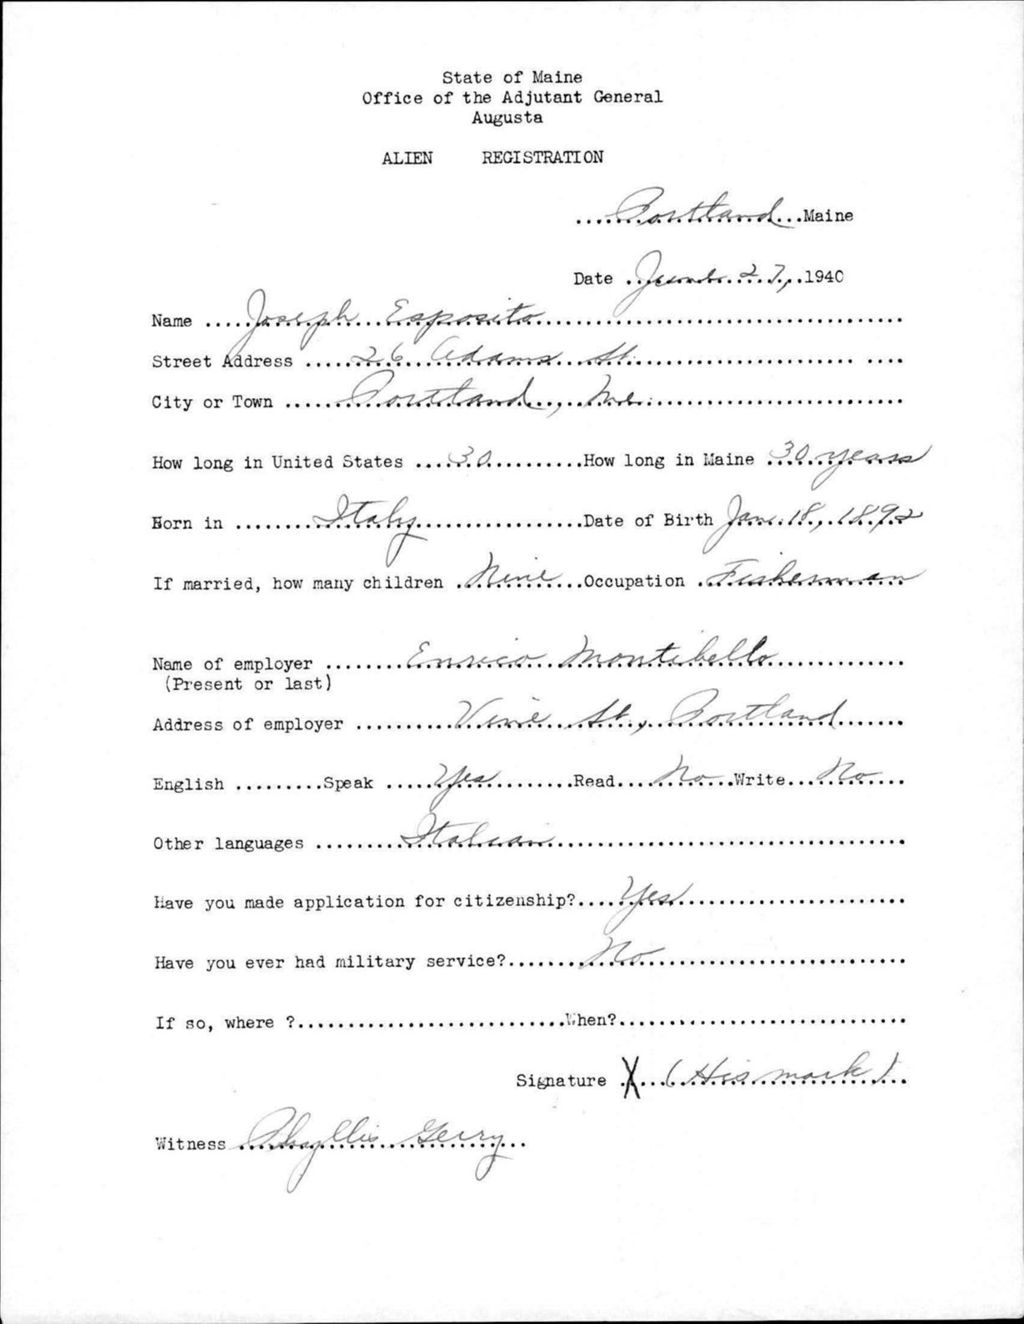 State of Maine
Office of the Adjutant General
Augusta
ALIEN REGISTRATION
....Portland...Maine
Date ..June 27,..1940
Name .....Joseph Esposito..............................
Street Address .....26 Adams St........................
City or Town .....Portland, Me.........................
How long in United States ....30..........How long in Maine 30 years
Born in ........Italy.................Date of Birth Jan. 18, 1892
If married, how many children .Nine...Occupation .Fisherman
Name of employer ........Enrico Montibello.............
(Present or last)
Address of employer .........Vine St., Portland.......
English .........Speak .....Yes..........Read....No...Write...No....
Other languages .........Italian...............................
Have you made application for citizenship?....Yes.......................
Have you ever had military service?.......No..........................
If so, where ?...........................When?.............................
Signature .X...(His mark)..
Witness Phyllis Gerry...